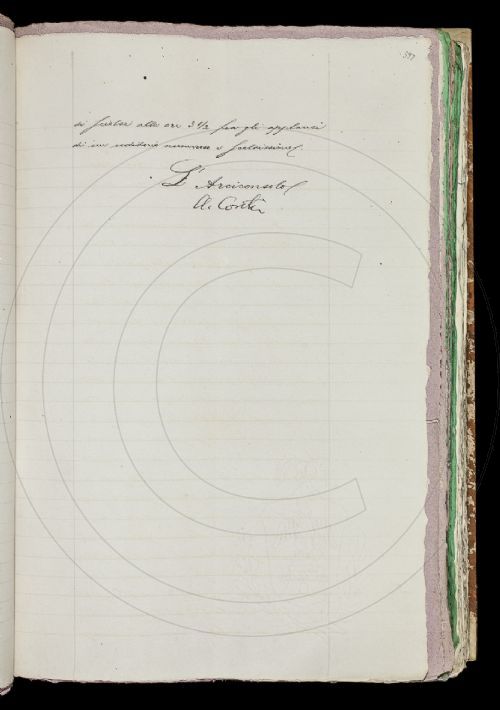 397
si sciolse alle ore 3 1/2 fra gli applausi
di un uditorio numeroso e sceltissimo.
L'Arciconsolo
A. Conti